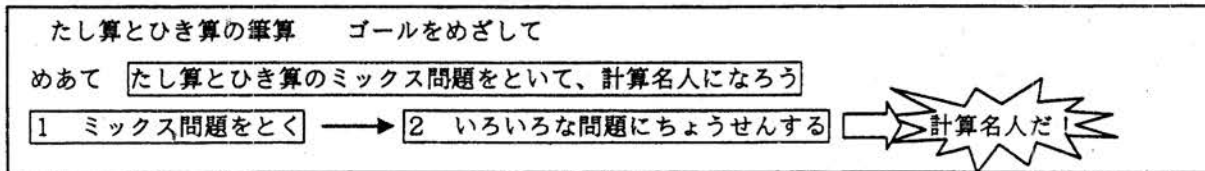 たし算とひき算の筆算　　ゴールをめざして
めあて　たし算とひき算のミックス問題をといて、計算名人になろう
1　ミックス問題をとく　2　いろいろな問題にちょうせんする　計算名人だ！